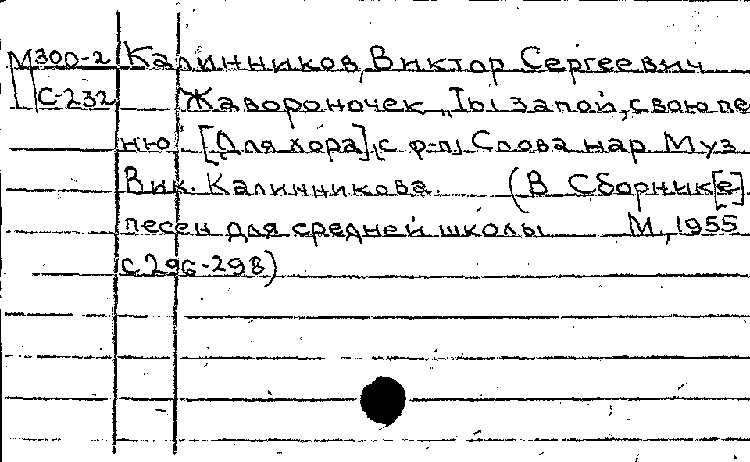 М300-2 Калинников, Виктор Сергеевич
С-232 Жавороночек „Ты запой, свою пе
ню" [Для хора] с ф-п. Слова нар. Муз.
Вик. Калинникова. (В Сборник[е]
песен для средней школы М., 1955
с 296-298)